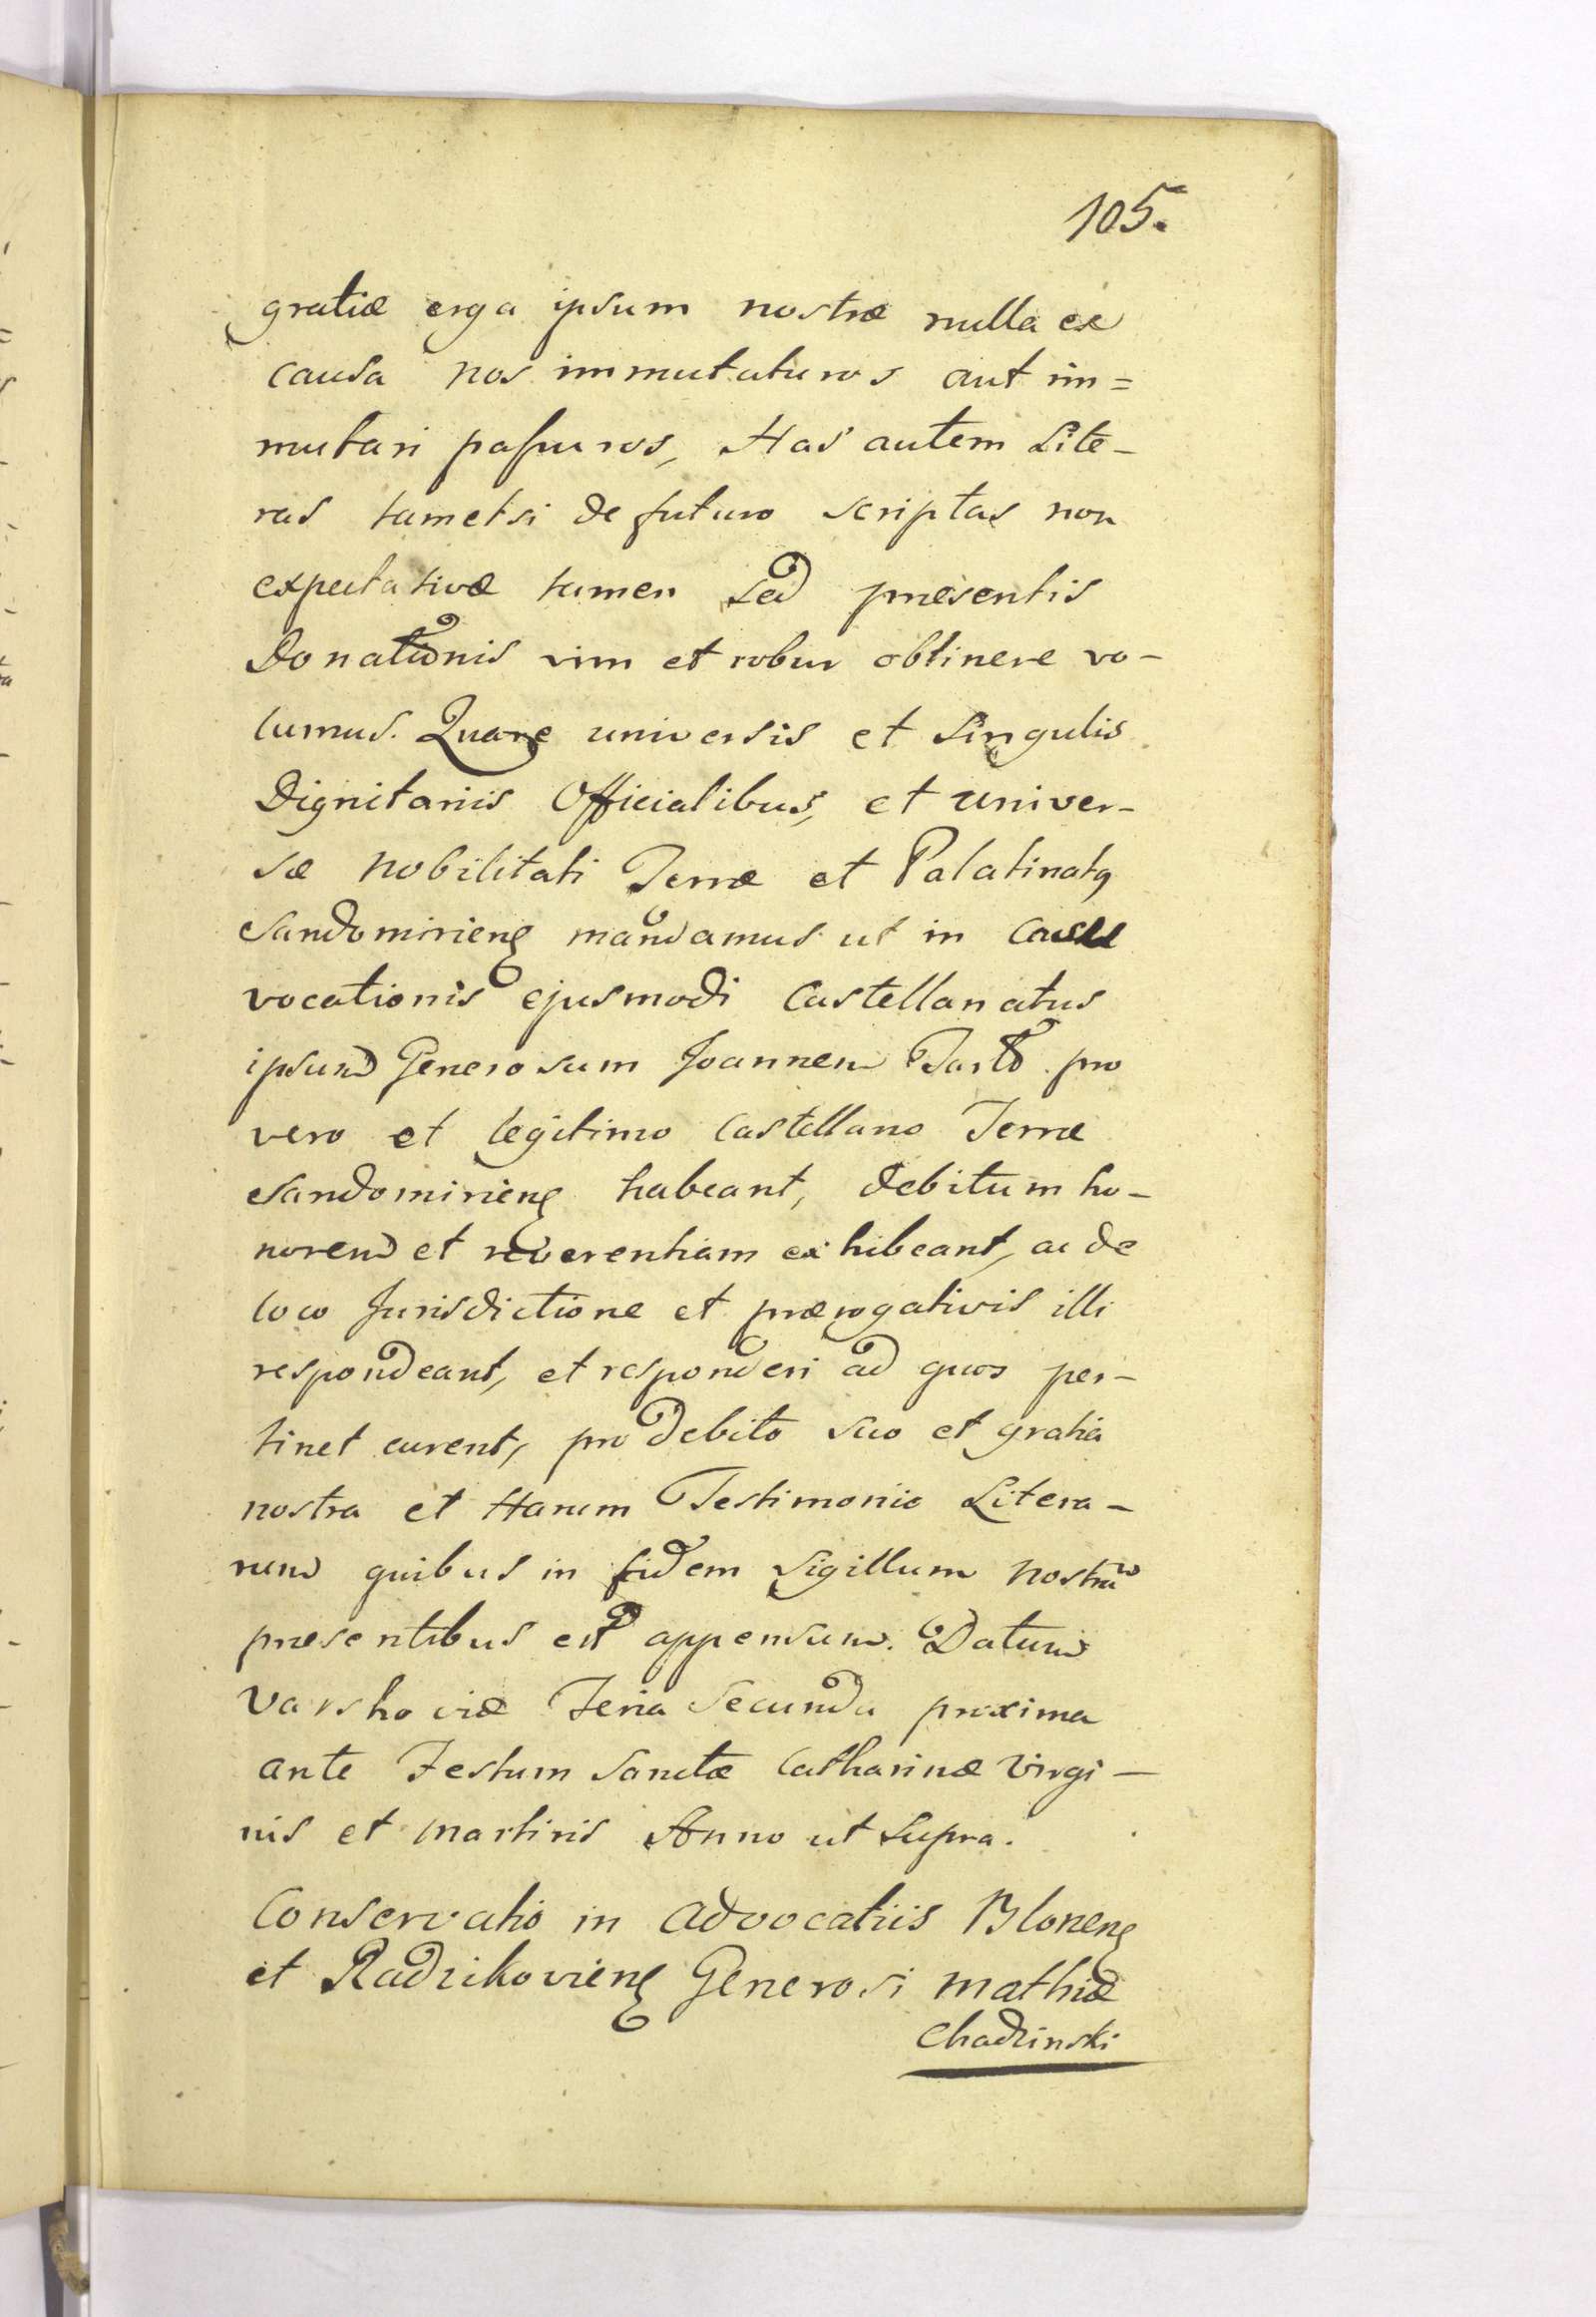 105.
gratiæ erga ipsum nostræ nulla ex
causa nos immutaturos aut im=
mutari passuros, Has autem Lite-
ras tametsi de futuro scriptas non
expectativæ tamen sed præsentis
Donationis vim et robur obtinere vo-
lumus. Quare universis et singulis
Dignitariis Officialibus, et univer-
sæ Nobilitati Terræ et Palatinatq
Sandomirienç mandamus ut in casu
vocationis ejusmodi Castellanatus
ipsum Generosum Joannem pro
vero et legitimo Castellano Terræ
Sandomirienç habeant, debitum ho-
norem et reverentiam exhibeant, ac de
loco Jurisdictione et prærogativis illi
respondeant, et responderi ad quos per-
tinet curent, pro debito suo et gratia
nostra et Harum Testimonio Litera-
rum quibus in fidem Sigillum nostrum
præsentibus est appensum. Datum
Varshoviæ Feria Secunda proxima
ante Festum Sanctæ Catharinæ Virgi-
nis et Martiris Anno ut Supra.
Conservatio in Advocatiis Blonenç
et Radzikovienç Generosi Mathiæ
Chadzinski